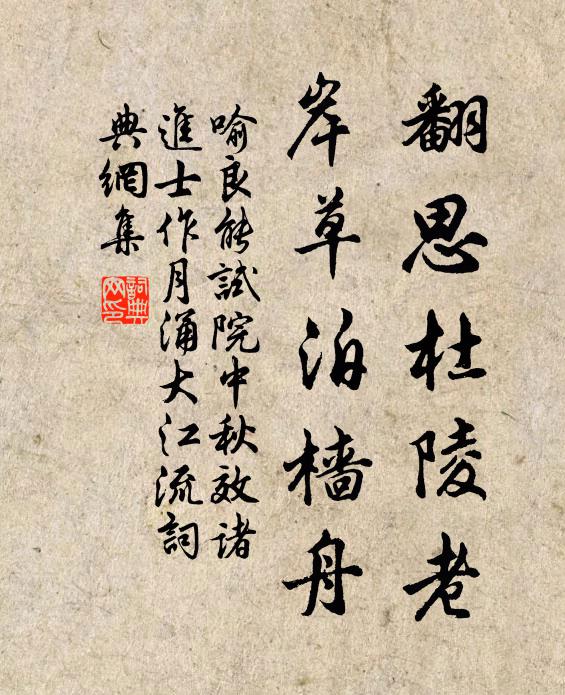 翻思杜陵老
岸草泊樯舟
喻良能試院中秋效诸
進士作月涌大江流詞
典網集
詞典
网印